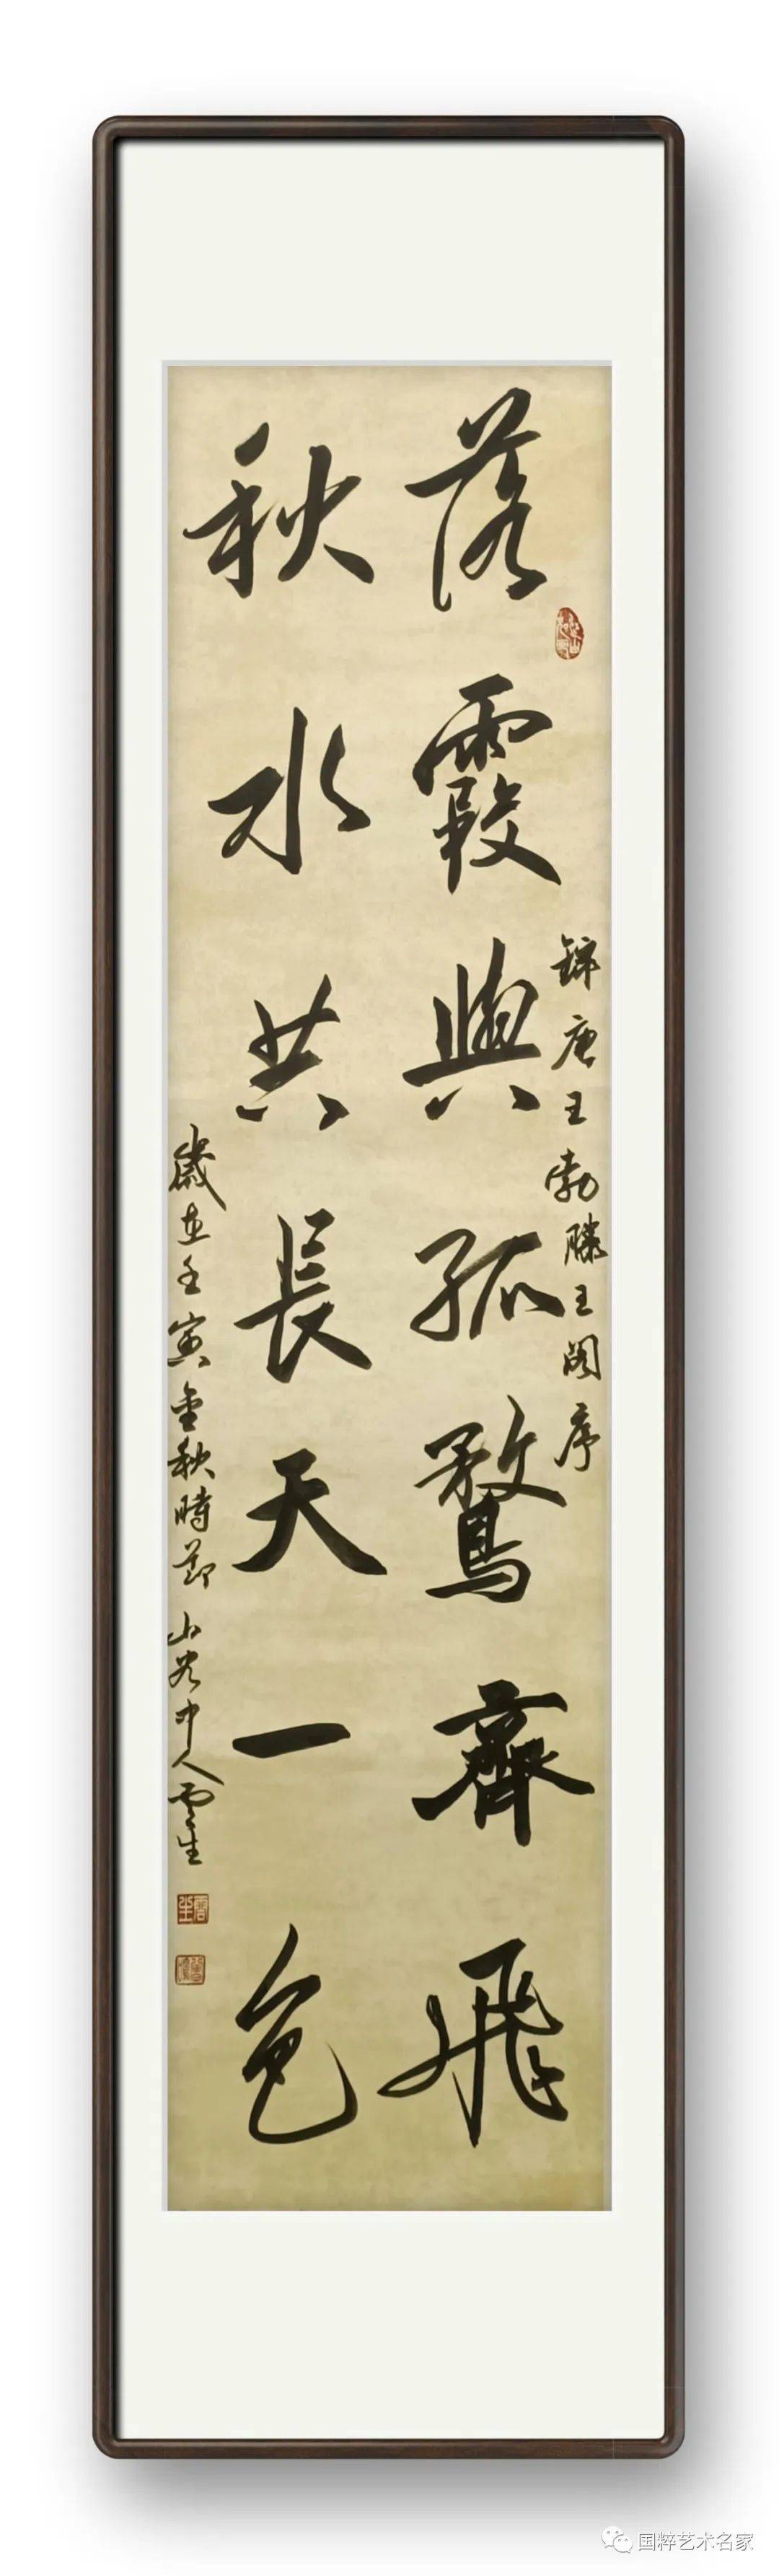 落霞與孤鶩齊飛
秋水共長天一色
錄唐王勃滕王阁序
歲在壬寅金秋時節山谷中人雲生
雲生
国粹艺术名家